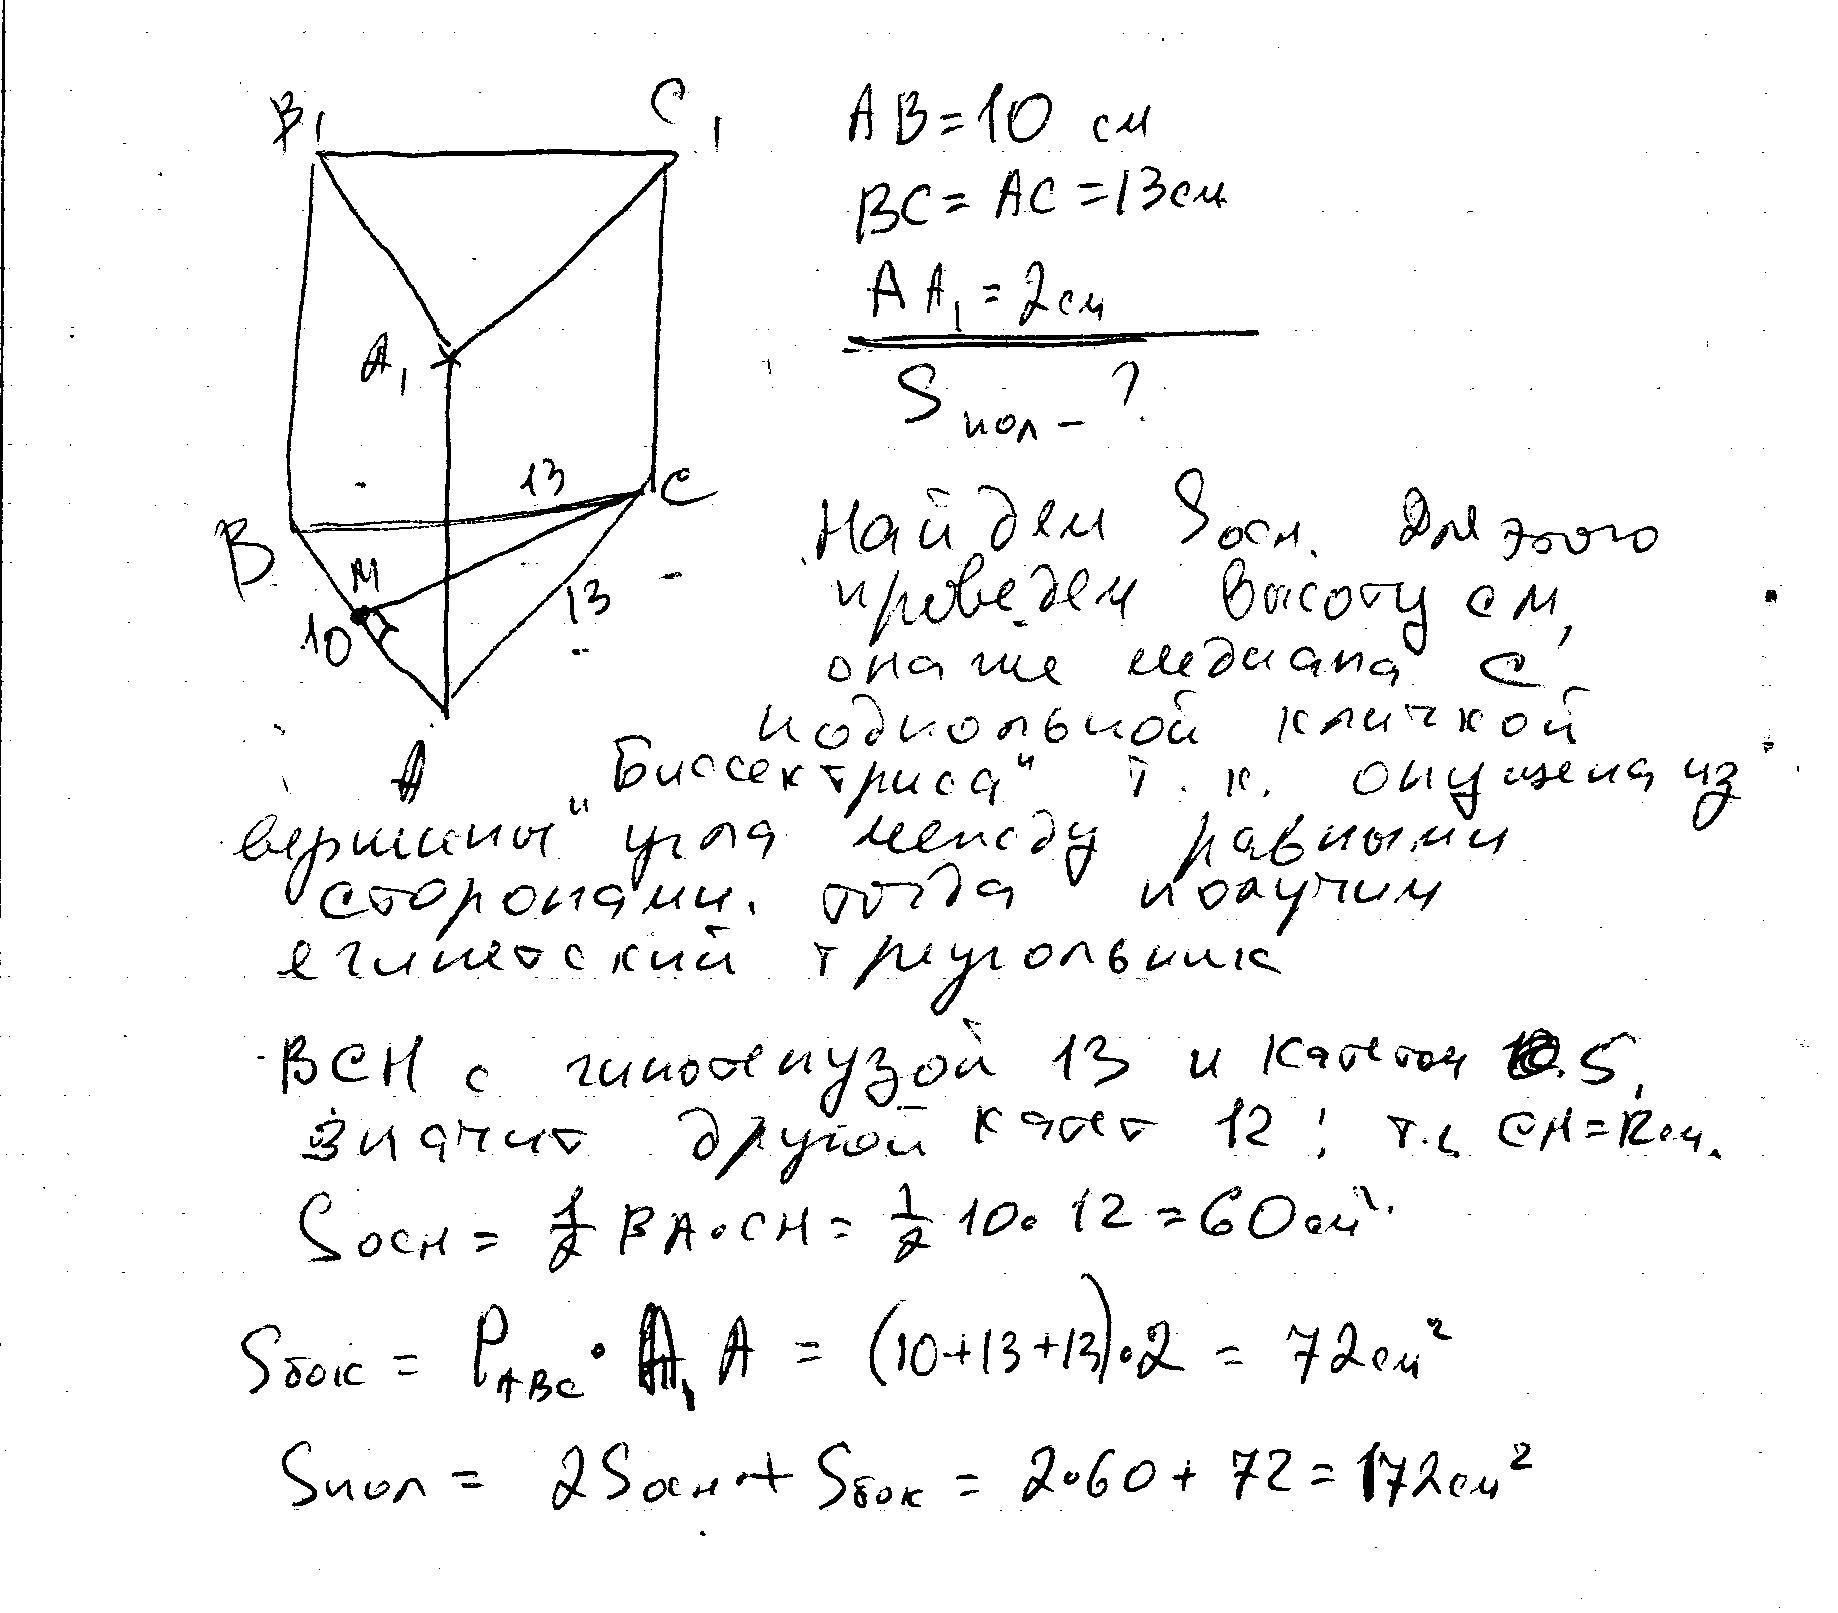 B₁
C₁
AB=10 см
BC=AC=13см
AA₁=2см
A₁
Sпол-?
13
C
B
M
10
13
A
Найдем Sосн. Для этого
проведем высоту СМ,
она же медиана с
подпольной кличкой
"Биссектриса" т.к. опущена из
вершины угла между равными
сторонами. тогда получим
египетский треугольник
BCH с гипотенузой 13 и катетом 5,
значит другой катет 12! т.е. CH=12см.
Sосн = 1/2 BA·CH = 1/2 10·12 = 60см².
Sбок = P_ABC · A₁A = (10+13+13)·2 = 72см²
Sпол = 2Sосн + Sбок = 2·60+72=172см²